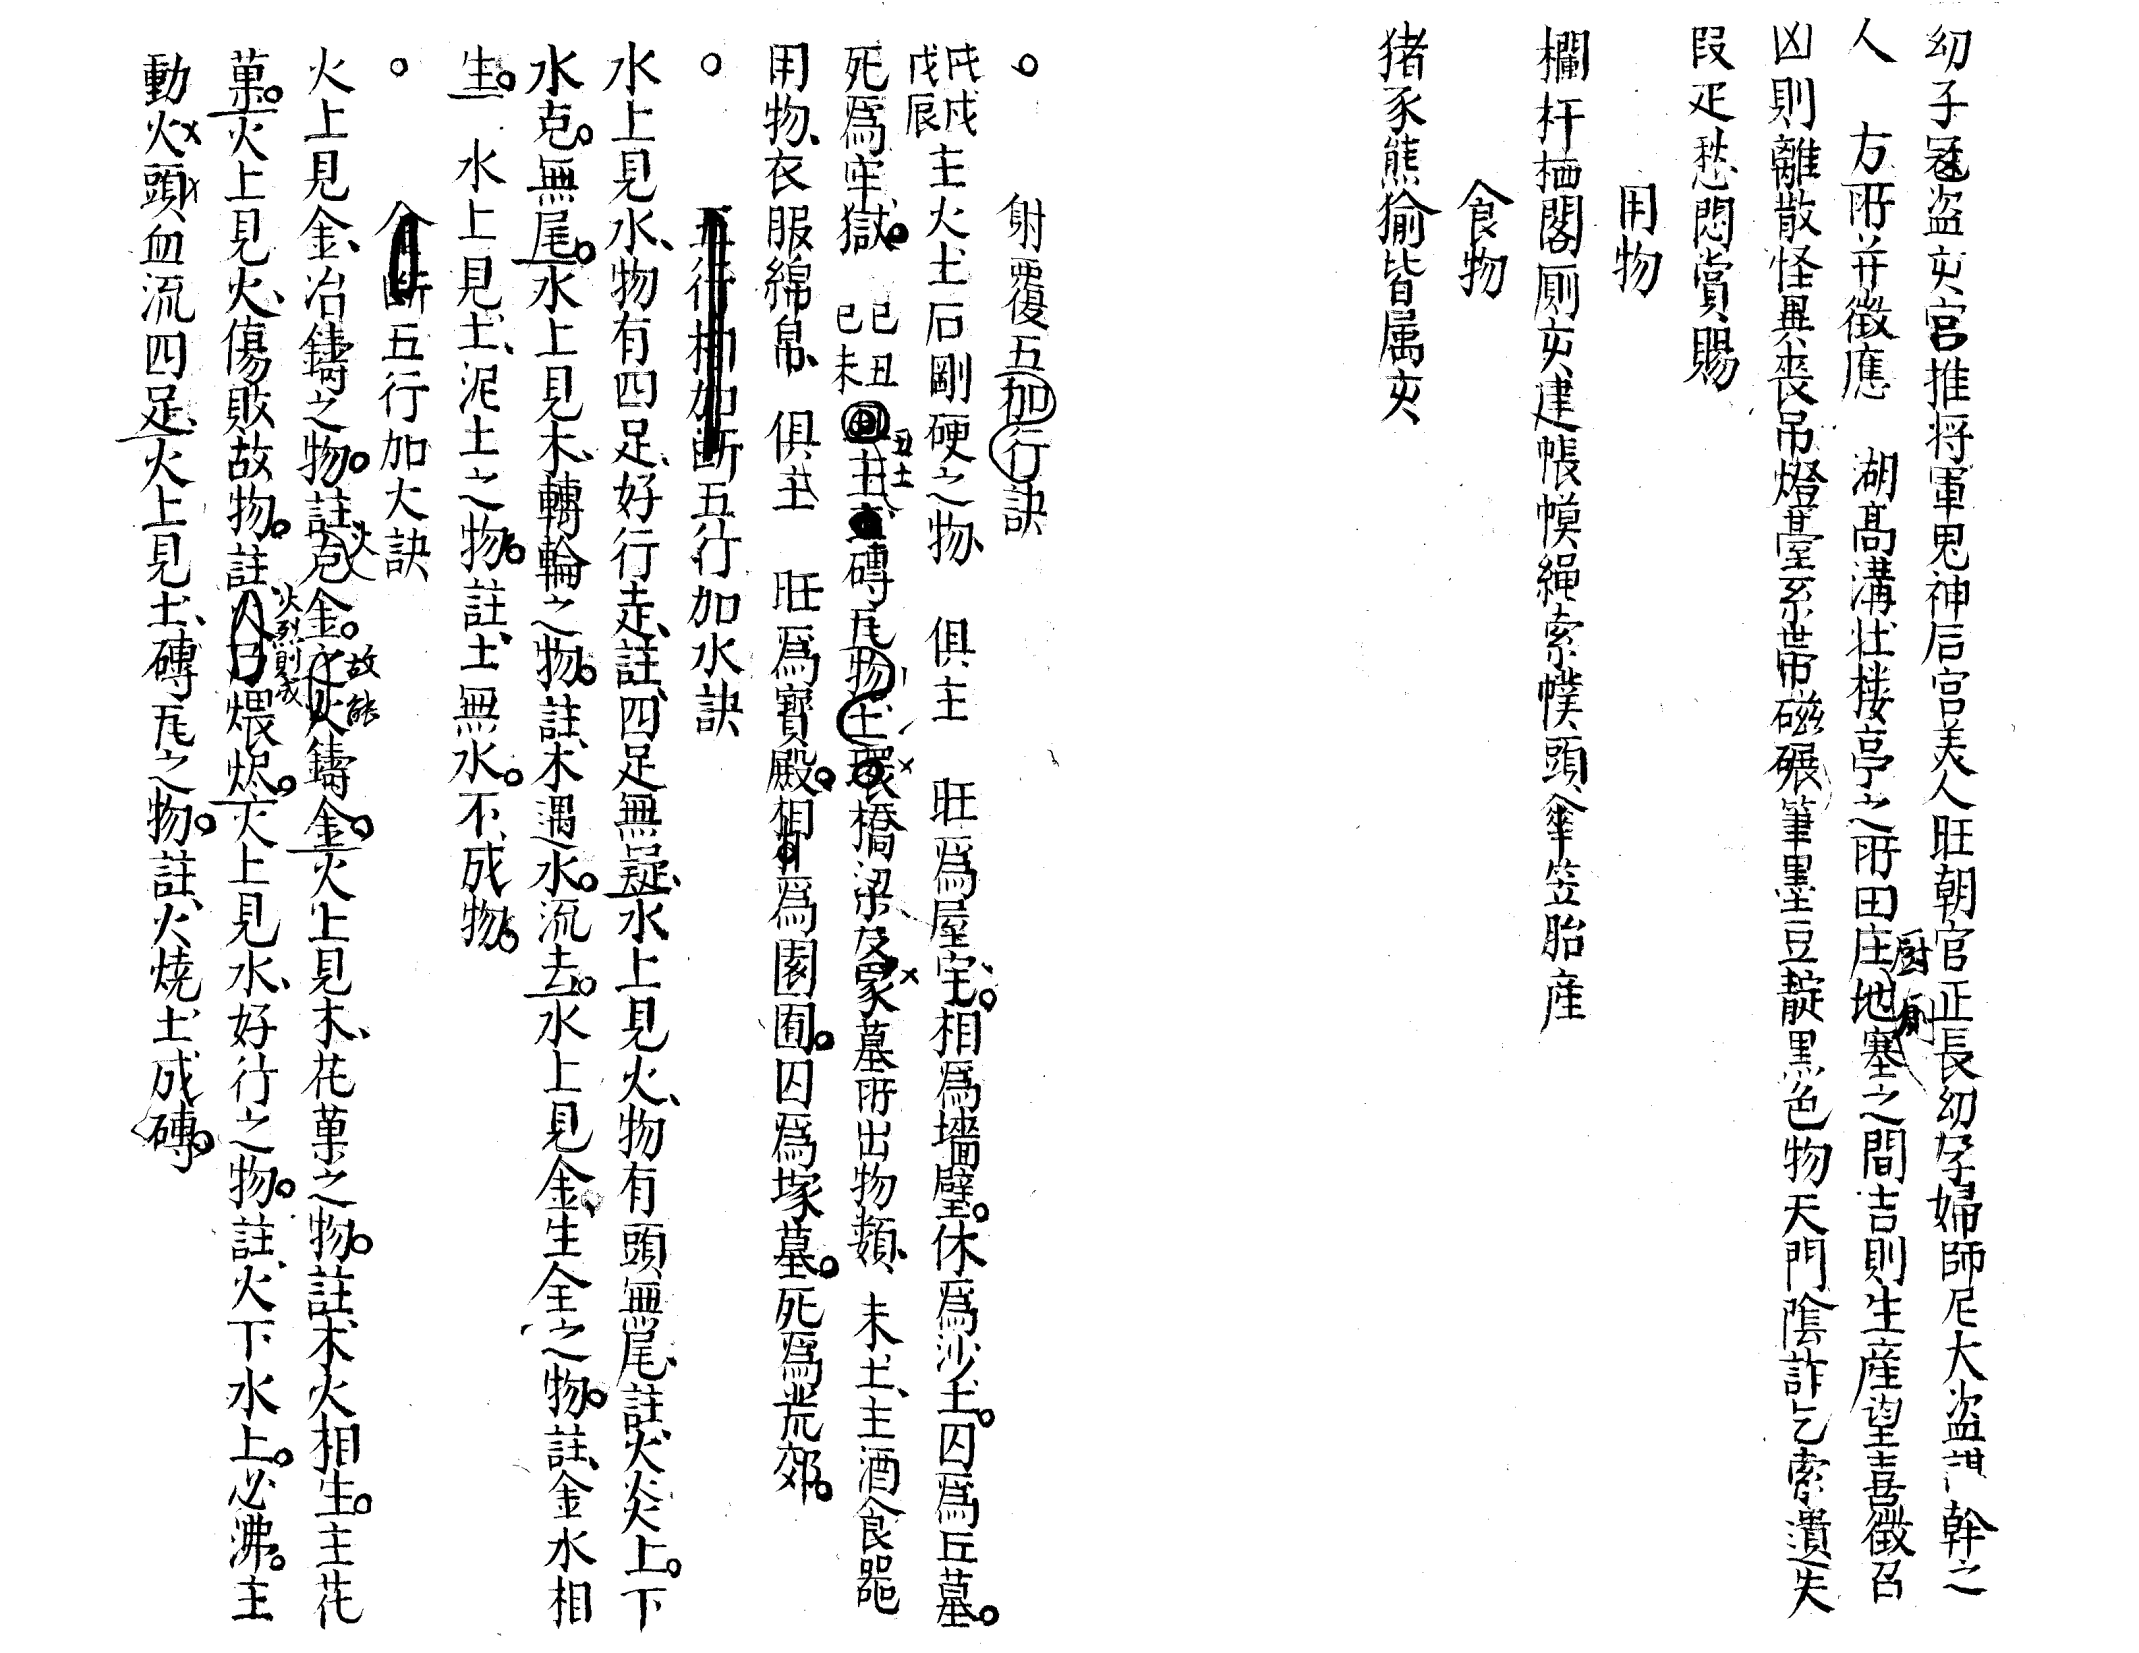 幼子冠盗亥宫推将軍鬼神后宫美人旺朝官正長幼孕婦師尼大盗謀幹之
人　方所并徵應　湖高溝壮楼亭之所田庄地塞之間吉則生産望喜徵召
厨廁
凶則離散怪異丧吊燈臺系帯磁碾筆墨豆靛黒色物天門陰詐乞索遺失
叚疋愁悶賞賜
用物
欄杆栖閣厠亥建帳幙繩索幞頭傘笠胎産
食物
猪豕熊㺄皆属亥
。　射覆五加行訣
戊戌戊辰主火土石剛硬之物、俱主　旺爲屋宅。相爲墻壁。休爲沙土。囚爲丘墓。
死爲牢獄。己丑己未丑土主磚瓦物土環橋梁及冢墓所出物類、未土、主酒食器
用物、衣服綿帛、俱主　旺爲寳殿。相爲園囿。囚爲塚墓。死爲荒郊。
。　五行相加断五行加水訣
水上見水、物有四足、好行走、註、四足無疑、水上見火、物有頭無尾、註、火炎上。下
水克。無尾。水上見木、轉輪之物。註、木遇水。流去。水上見金、生全之物。註、金水相
生。　水上見土、泥土之物。註、土無水。不成物。
。　断五行加火訣
火上見金、冶鑄之物。註、火克金。故能鑄金。火上見木、花菓之物。註、木火相生。主花
菓。火上見火、傷敗故物。註、火烈則成煨烬。火上見水、好行之物。註、火下水上。必沸。主
動火頭血流四足、火上見土、磚瓦之物。註、火燒土、成磚。